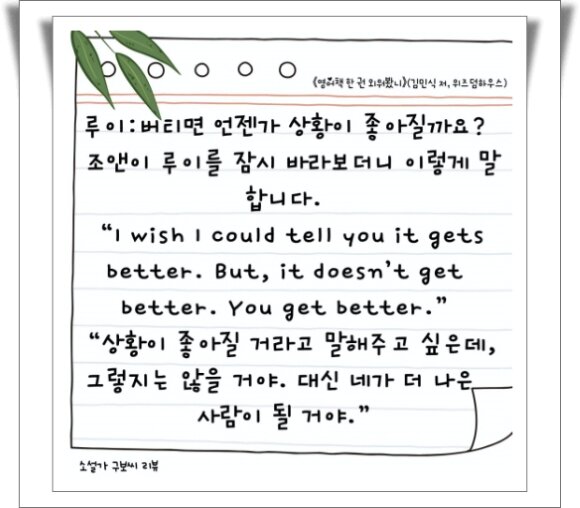 《영어책 한 권 외워봤니》(김민식 저, 위즈덤하우스)
루이:버티면 언젠가 상황이 좋아질까요?
조앤이 루이를 잠시 바라보더니 이렇게 말
합니다.
“I wish I could tell you it gets
better. But, it doesn’t get
better. You get better.”
“상황이 좋아질 거라고 말해주고 싶은데,
그렇지는 않을 거야. 대신 네가 더 나은
사람이 될 거야.”
소설가 구보씨 리뷰